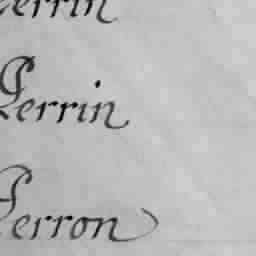 Perrin
Perrin
Perron